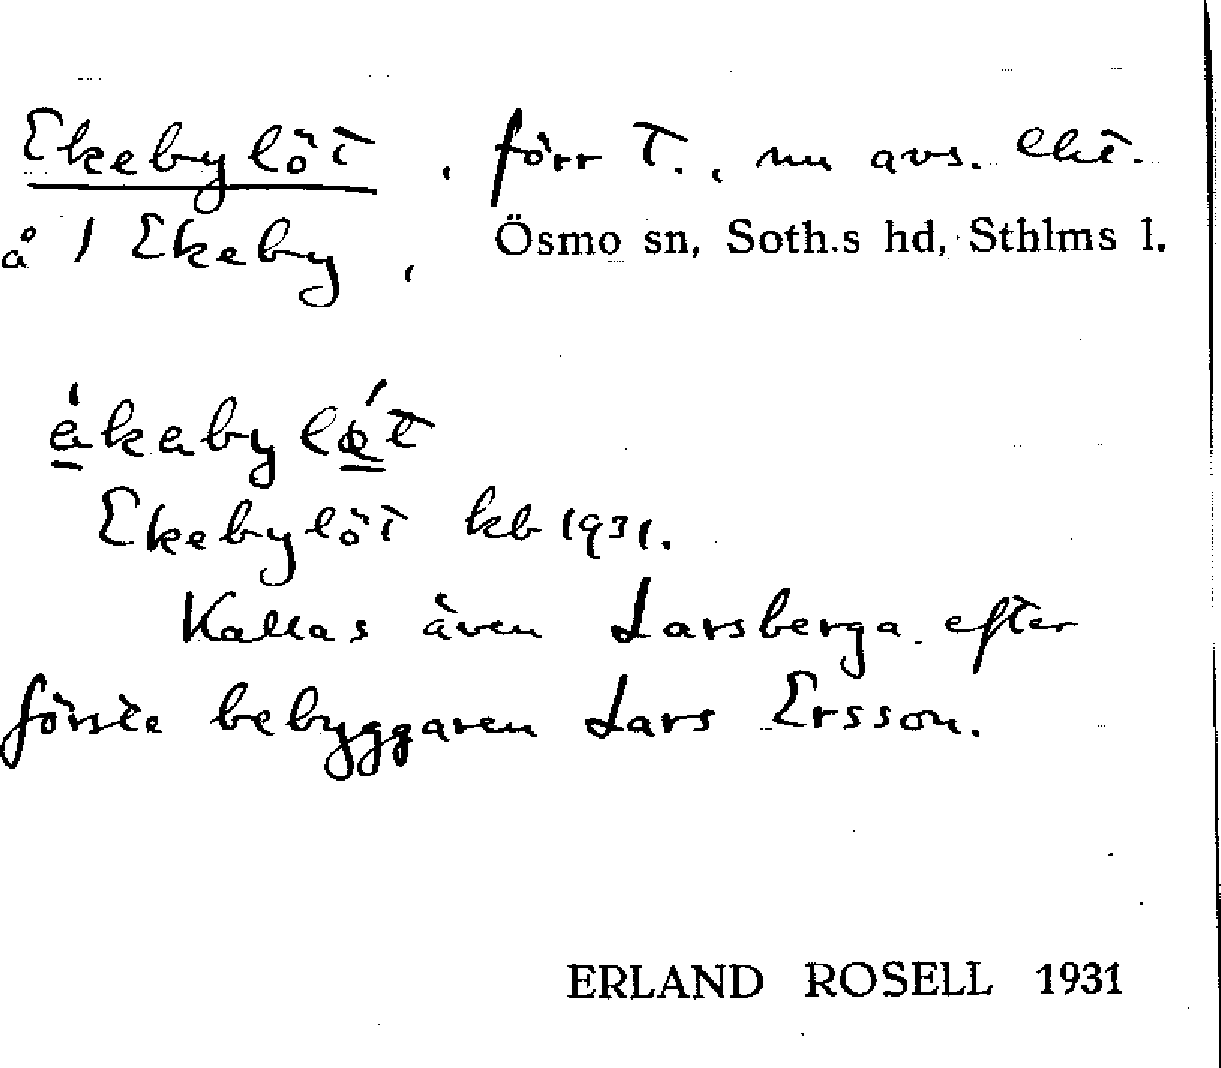 Ekebylöt, förr T., nu avs. lht.
å 1 Ekeby, Ösmo sn, Soth.s hd, Sthlms l.
Ekebylöt kb 1931.
Kallas även Larsberga efter
förste bebyggaren Lars Ersson.
ERLAND ROSELL 1931